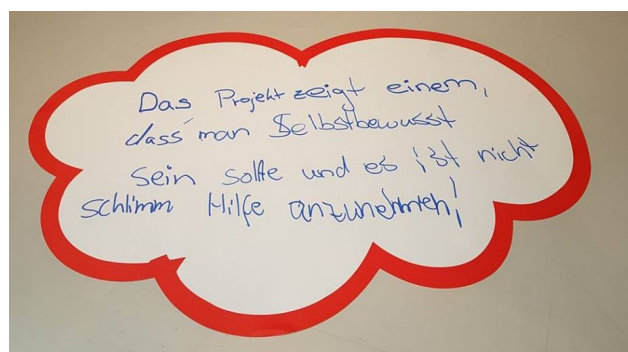 Das Projekt zeigt einem,
dass man Selbstbewusst
sein sollte und es ist nicht
schlimm Hilfe anzunehmen!